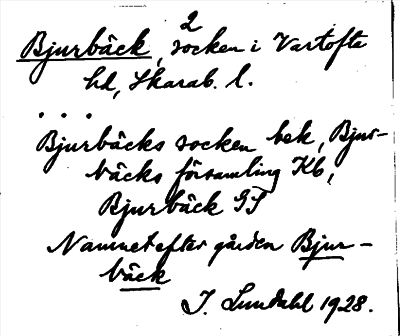 2
Bjurbäck, socken i Vartofta
hd, Skarab. l.
. . .
Bjurbäcks socken bek, Bjur-
bäcks församling Kb,
Bjurbäck GS
Namnet efter gården Bjur-
bäck
I. Lundahl 1928.